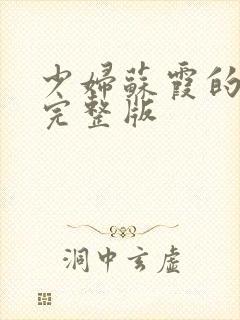 少婦蘇霞的
完整版
洞中玄虛